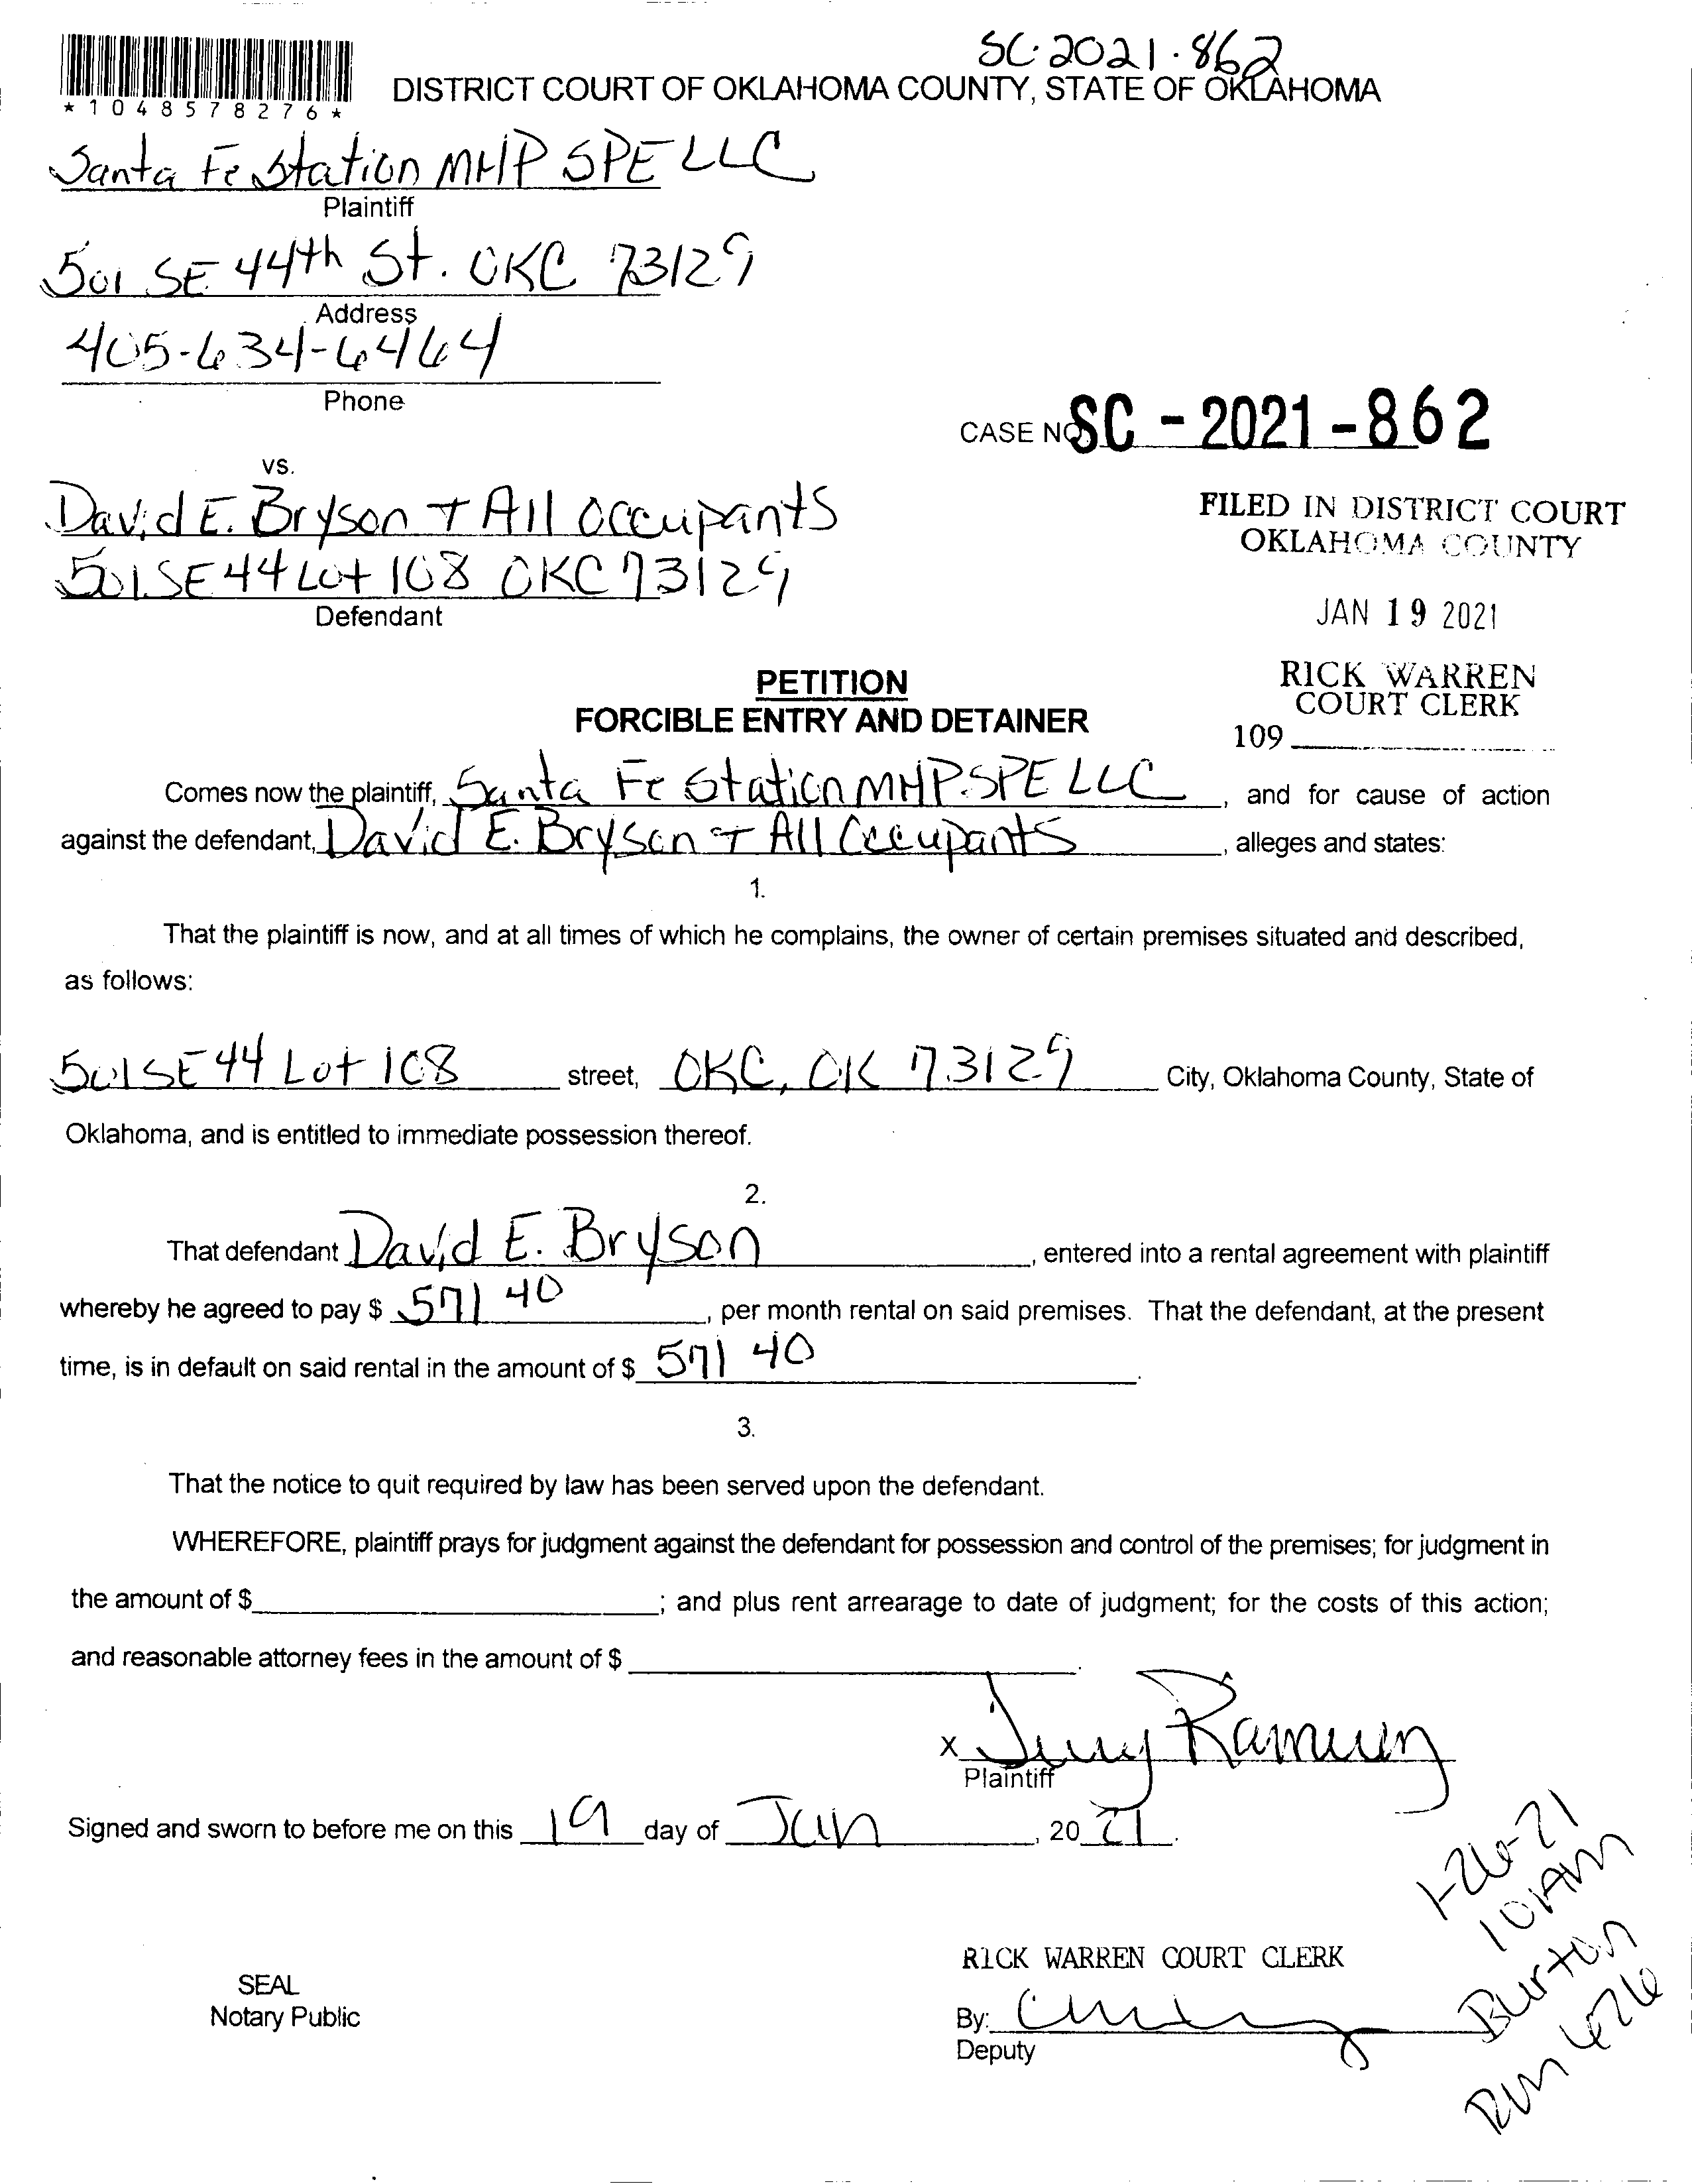 SC-2021-862
*1048578276*
DISTRICT COURT OF OKLAHOMA COUNTY, STATE OF OKLAHOMA
Santa Fe Station MHP SPE LLC
Plaintiff
501 SE 44th St. OKC 73129
Address
405-634-6464
Phone
CASE NO SC - 2021 - 862
vs.
David E. Bryson + All Occupants
501 SE 44 Lot 108 OKC 73129
Defendant
FILED IN DISTRICT COURT
OKLAHOMA COUNTY
JAN 19 2021
RICK WARREN
COURT CLERK
109
PETITION
FORCIBLE ENTRY AND DETAINER
Comes now the plaintiff, Santa Fe Station MHP SPE LLC, and for cause of action
against the defendant, David E. Bryson + All Occupants, alleges and states:
1.
That the plaintiff is now, and at all times of which he complains, the owner of certain premises situated and described,
as follows:
501 SE 44 Lot 108 street, OKC, OK 73129 City, Oklahoma County, State of
Oklahoma, and is entitled to immediate possession thereof.
2.
That defendant David E. Bryson, entered into a rental agreement with plaintiff
whereby he agreed to pay $ 571 40, per month rental on said premises. That the defendant, at the present
time, is in default on said rental in the amount of $ 571 40.
3.
That the notice to quit required by law has been served upon the defendant.
WHEREFORE, plaintiff prays for judgment against the defendant for possession and control of the premises; for judgment in
the amount of $ ; and plus rent arrearage to date of judgment; for the costs of this action;
and reasonable attorney fees in the amount of $ .
X
Plaintiff
Signed and sworn to before me on this 19 day of Jan, 20 21.
1-26-21
10 AM
Burton
RM 626
RICK WARREN COURT CLERK
SEAL
Notary Public
By:
Deputy